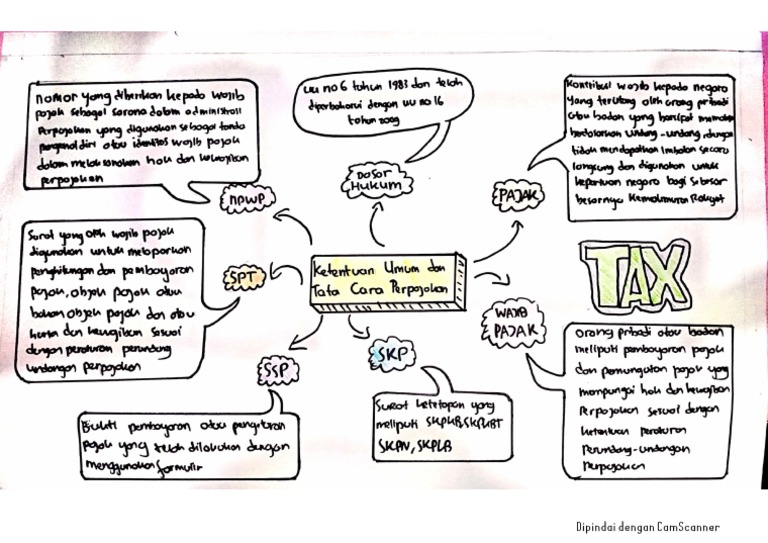 nomor yang diberikan kepada wajib
pajak sebagai sarana dalam administrasi
Perpajakan yang digunakan sebagai tanda
pengenal diri atau identitas wajib pajak
dalam melaksanakan hak dan kewajiban
perpajakan
NPWP
UU no 6 tahun 1983 dan telah
diperbaharui dengan UU no 16
tahun 2009
DASAR
HUKUM
Kontribusi wajib kepada negara
Yang terutang oleh orang pribadi
atau badan yang bersifat memaksa
berdasarkan undang-undang, dengan
tidak mendapatkan imbalan secara
langsung dan digunakan untuk
keperluan negara bagi sebesar
besarnya kemakmuran Rakyat
PAJAK
Surat yang oleh wajib pajak
digunakan untuk melaporkan
penghitungan dan pembayaran
pajak, objek pajak atau
bukan objek pajak dan atau
harta dan kewajiban sesuai
dengan peraturan perundang
undangan perpajakan
SPT
Ketentuan Umum dan
Tata Cara Perpajakan
TAX
WAJIB
PAJAK
Orang pribadi atau badan
meliputi pembayaran pajak
dan pemungutan pajak yang
mempunyai hak dan kewajiban
Perpajakan sesuai dengan
ketentuan peraturan
Perundang-undangan
Perpajakan
SSP
Bukti pembayaran atau penyetoran
pajak yang telah dilakukan dengan
menggunakan formulir
SKP
Surat ketetapan yang
meliputi SKPKB, SKPKBT
SKPN, SKPLB
Dipindai dengan CamScanner